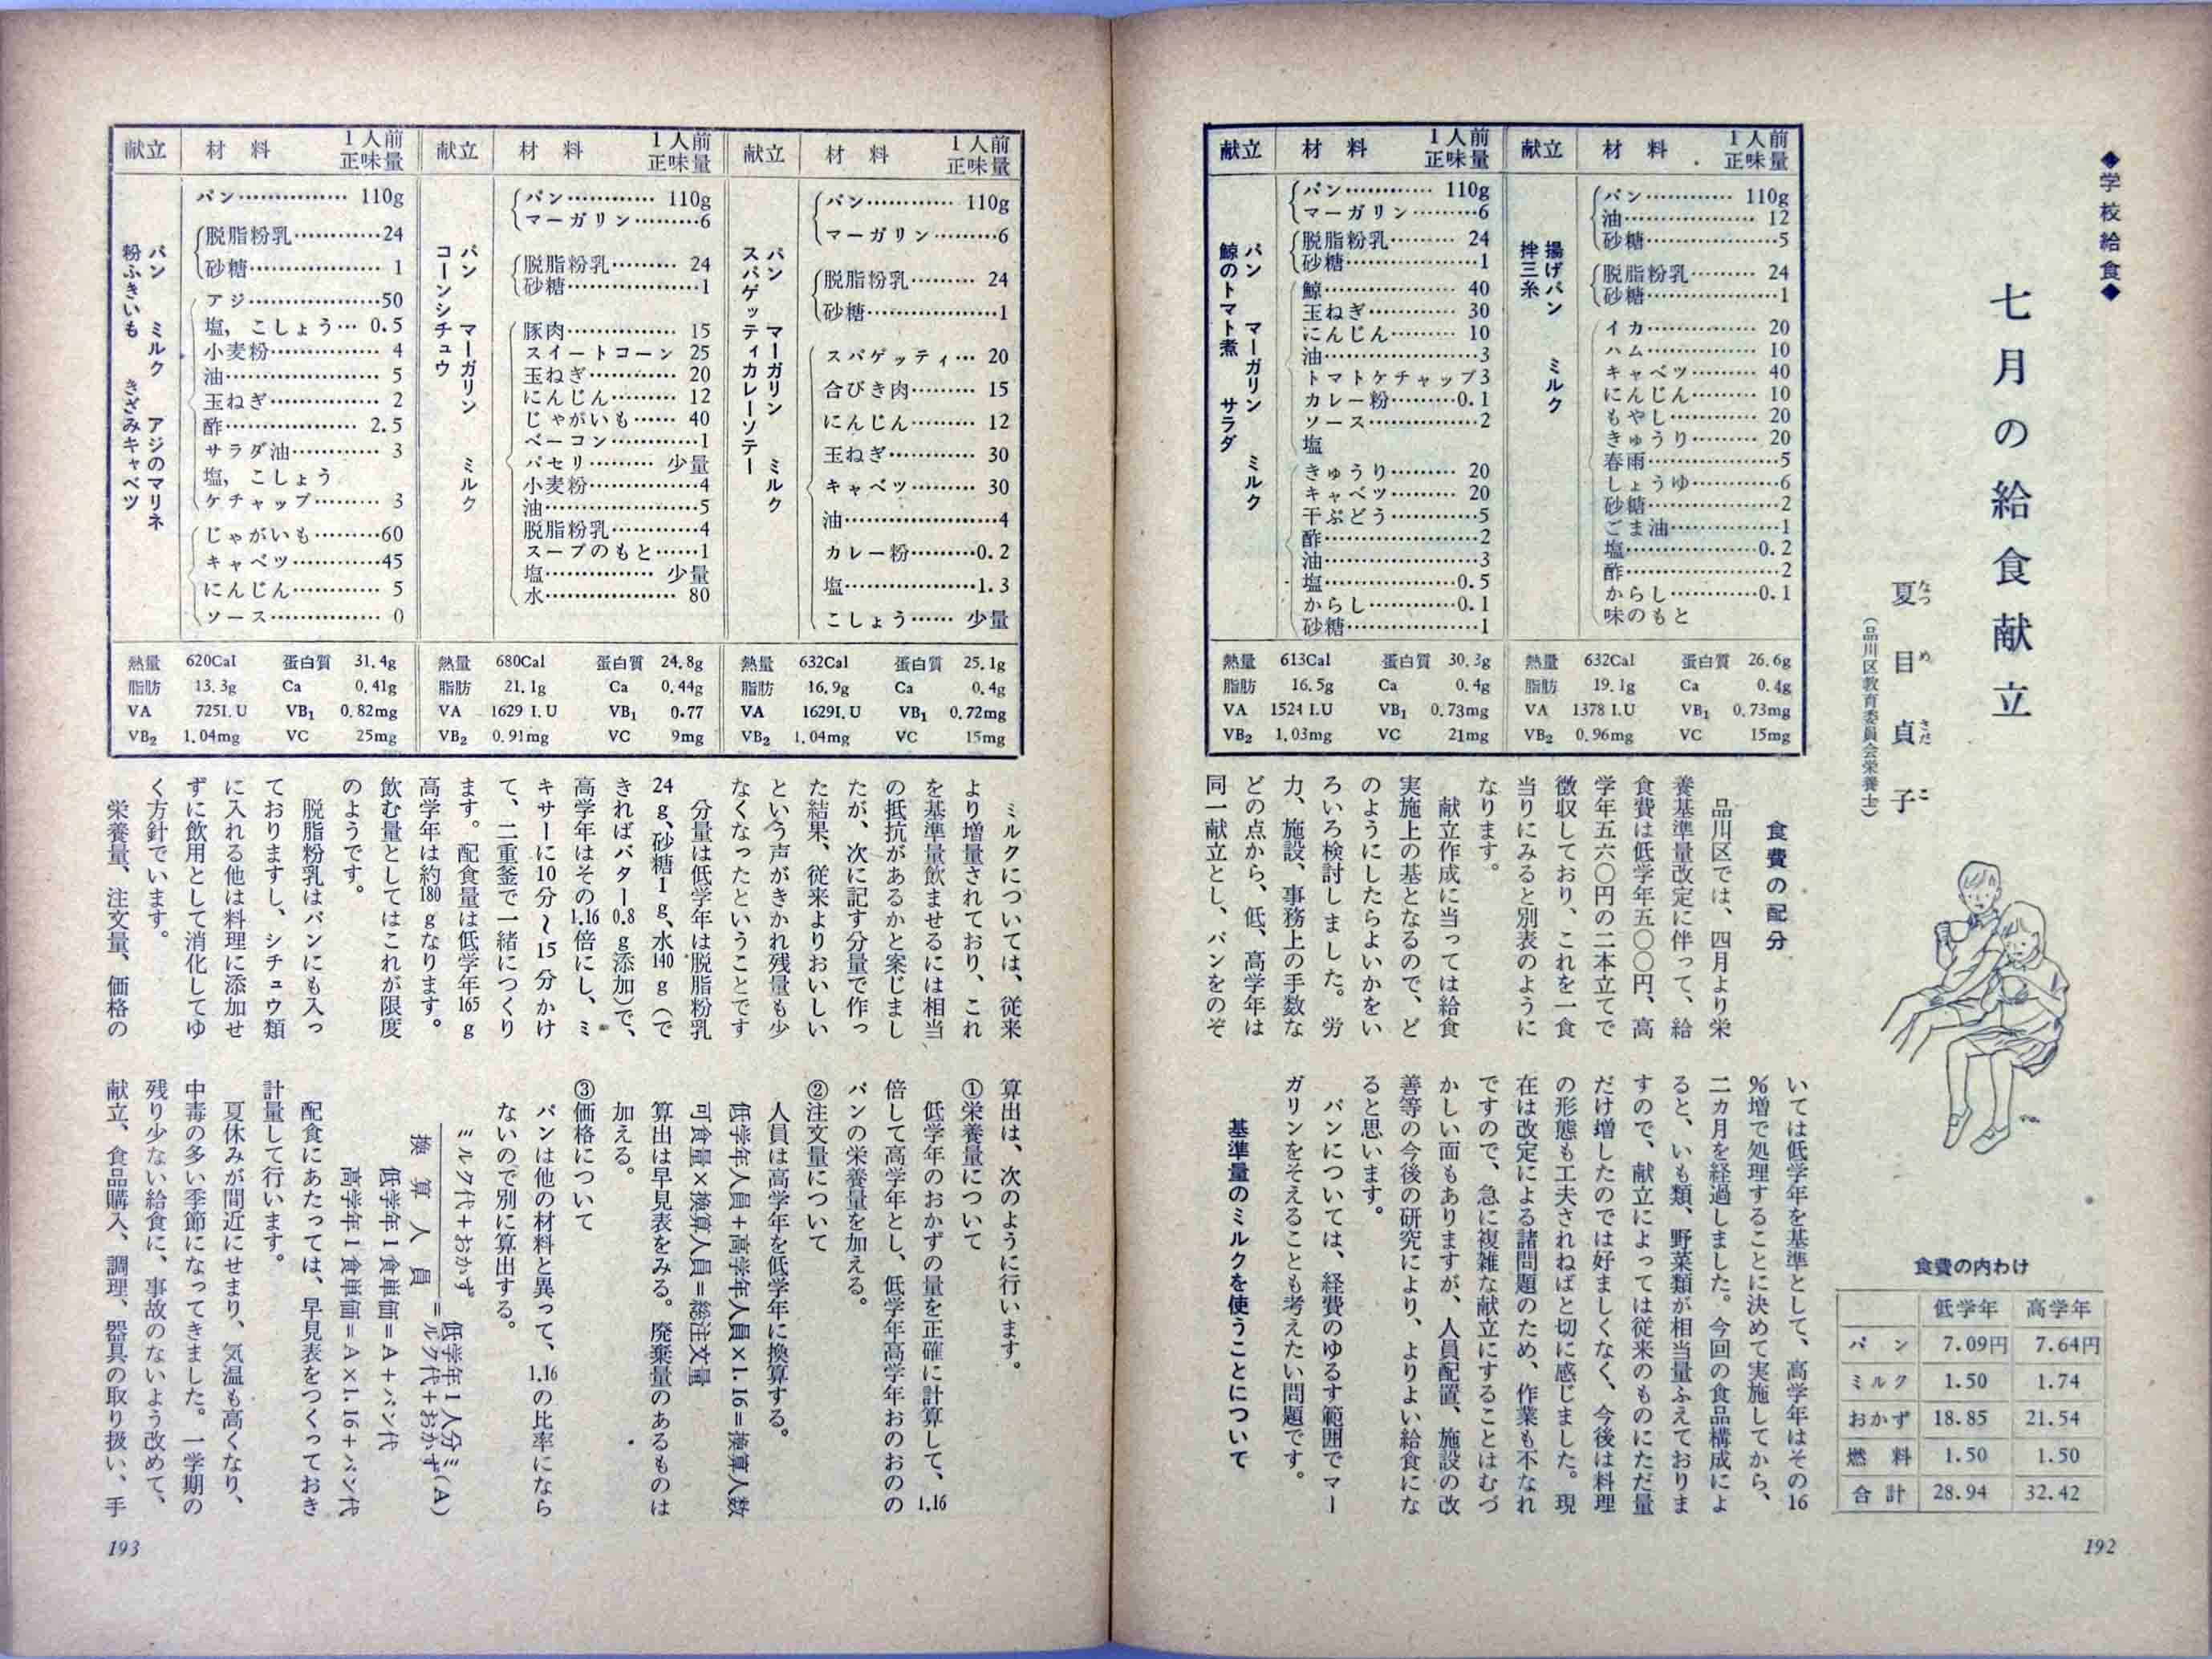 ◆学校給食◆
七月の給食献立
夏目貞子
なつめさだこ
（品川区教育委員会栄養士）
食費の内わけ
低学年 高学年
パン 7.09円 7.64円
ミルク 1.50 1.74
おかず 18.85 21.54
燃料 1.50 1.50
合計 28.94 32.42
献立 材料 1人前正味量
揚げパン ミルク
拌三糸
パン………… 110g
油………………… 12
砂糖………………5
脱脂粉乳……… 24
砂糖………………1
イカ…………… 20
ハム…………… 10
キャベツ……… 40
にんじん……… 10
もやし………… 20
きゅうり……… 20
春雨………………5
しょうゆ…………6
砂糖………………2
ごま油……………1
塩………………0.2
酢…………………2
からし…………0.1
味のもと
熱量 632Cal 蛋白質 26.6g
脂肪 19.1g Ca 0.4g
VA 1378 I.U VB₁ 0.73mg
VB₂ 0.96mg VC 15mg
献立 材料 1人前正味量
パン マーガリン ミルク
鯨のトマト煮 サラダ
パン………… 110g
マーガリン………6
脱脂粉乳……… 24
砂糖………………1
鯨……………… 40
玉ねぎ………… 30
にんじん……… 10
油…………………3
トマトケチャップ3
カレー粉………0.1
ソース……………2
塩
きゅうり……… 20
キャベツ……… 20
干ぶどう…………5
酢…………………2
油…………………3
塩………………0.5
からし…………0.1
砂糖………………1
熱量 613Cal 蛋白質 30.3g
脂肪 16.5g Ca 0.4g
VA 1524 I.U VB₁ 0.73mg
VB₂ 1.03mg VC 21mg
食費の配分
品川区では、四月より栄
養基準量改定に伴って、給
食費は低学年五〇〇円、高
学年五六〇円の二本立てで
徴収しており、これを一食
当りにみると別表のように
なります。
献立作成に当っては給食
実施上の基となるので、ど
のようにしたらよいかをい
ろいろ検討しました。労
力、施設、事務上の手数な
どの点から、低、高学年は
同一献立とし、パンをのぞ
いては低学年を基準として、高学年はその16
%増で処理することに決めて実施してから、
二カ月を経過しました。今回の食品構成によ
ると、いも類、野菜類が相当量ふえておりま
すので、献立によっては従来のものにただ量
だけ増したのでは好ましくなく、今後は料理
の形態も工夫されねばと切に感じました。現
在は改定による諸問題のため、作業も不なれ
ですので、急に複雑な献立にすることはむづ
かしい面もありますが、人員配置、施設の改
善等の今後の研究により、よりよい給食にな
ると思います。
パンについては、経費のゆるす範囲でマー
ガリンをそえることも考えたい問題です。
基準量のミルクを使うことについて
192
献立 材料 1人前正味量
パン マーガリン ミルク
スパゲッティカレーソテー
パン………… 110g
マーガリン………6
脱脂粉乳……… 24
砂糖………………1
スパゲッティ… 20
合びき肉……… 15
にんじん……… 12
玉ねぎ………… 30
キャベツ……… 30
油…………………4
カレー粉………0.2
塩………………1.3
こしょう…… 少量
熱量 632Cal 蛋白質 25.1g
脂肪 16.9g Ca 0.4g
VA 1629I.U VB₁ 0.72mg
VB₂ 1.04mg VC 15mg
献立 材料 1人前正味量
パン マーガリン ミルク
コーンシチュウ
パン………… 110g
マーガリン………6
脱脂粉乳……… 24
砂糖………………1
豚肉…………… 15
スイートコーン 25
玉ねぎ………… 20
にんじん……… 12
じゃがいも…… 40
ベーコン…………1
パセリ……… 少量
小麦粉……………4
油…………………5
脱脂粉乳…………4
スープのもと……1
塩…………… 少量
水……………… 80
熱量 680Cal 蛋白質 24.8g
脂肪 21.1g Ca 0.44g
VA 1629 I.U VB₁ 0.77
VB₂ 0.91mg VC 9mg
献立 材料 1人前正味量
パン ミルク アジのマリネ
粉ふきいも きざみキャベツ
パン…………… 110g
脱脂粉乳…………24
砂糖……………… 1
アジ………………50
塩，こしょう… 0.5
小麦粉…………… 4
油………………… 5
玉ねぎ…………… 2
酢……………… 2.5
サラダ油………… 3
塩，こしょう
ケチャップ……… 3
じゃがいも………60
キャベツ…………45
にんじん………… 5
ソース…………… 0
熱量 620Cal 蛋白質 31.4g
脂肪 13.3g Ca 0.41g
VA 725I.U VB₁ 0.82mg
VB₂ 1.04mg VC 25mg
ミルクについては、従来
より増量されており、これ
を基準量飲ませるには相当
の抵抗があるかと案じまし
たが、次に記す分量で作っ
た結果、従来よりおいしい
という声がきかれ残量も少
なくなったということです
分量は低学年は脱脂粉乳
24g、砂糖1g、水140g（で
きればバター0.8g添加）で、
高学年はその1.16倍にし、ミ
キサーに10分～15分かけ
て、二重釜で一緒につくり
ます。配食量は低学年165g
高学年は約180gなります。
飲む量としてはこれが限度
のようです。
脱脂粉乳はパンにも入っ
ておりますし、シチュウ類
に入れる他は料理に添加せ
ずに飲用として消化してゆ
く方針でいます。
栄養量、注文量、価格の
算出は、次のように行います。
①栄養量について
低学年のおかずの量を正確に計算して、1.16
倍して高学年とし、低学年高学年おのおのの
パンの栄養量を加える。
②注文量について
人員は高学年を低学年に換算する。
低学年人員＋高学年人員×1.16＝換算人数
可食量×換算人員＝総注文量
算出は早見表をみる。廃棄量のあるものは
加える。
③価格について
パンは他の材料と異って、1.16の比率になら
ないので別に算出する。
ミルク代＋おかず
換算人員
＝低学年1人分ミルク代＋おかず(A)
低学年1食単価＝A＋パン代
高学年1食単価＝A×1.16＋パン代
配食にあたっては、早見表をつくっておき
計量して行います。
夏休みが間近にせまり、気温も高くなり、
中毒の多い季節になってきました。一学期の
残り少ない給食に、事故のないよう改めて、
献立、食品購入、調理、器具の取り扱い、手
193